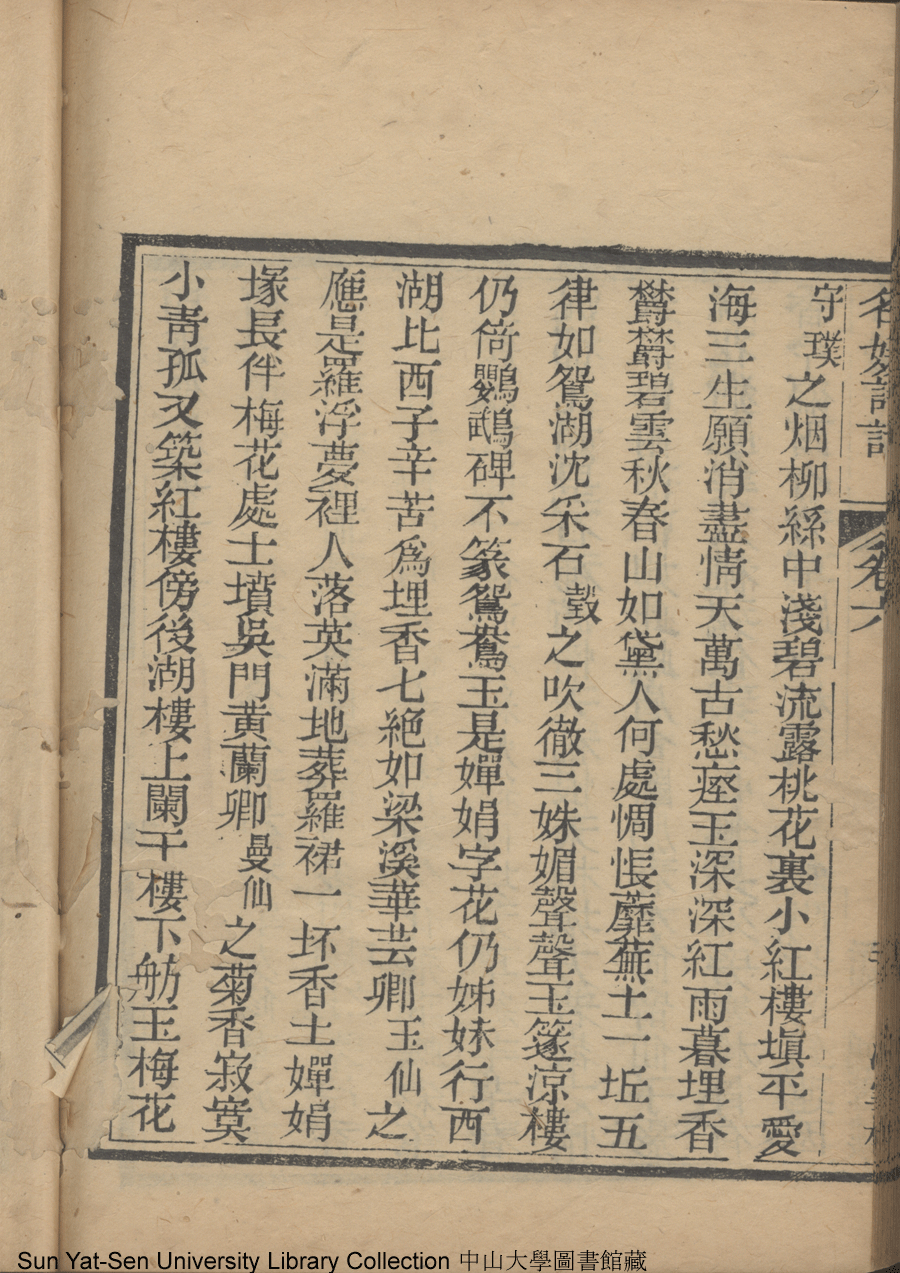 名媛詩話 卷六
守璞之烟柳絲中淺碧流露桃花裏小紅樓塡平愛
海三生願消盡情天萬古愁瘞玉深深紅雨暮埋香
欝欝碧雲秋春山如黛人何處惆悵蘼蕪土一坵五
律如鴛湖沈采石瑴之吹徹三姝媚聲聲玉篴涼樓
仍倚鸚鵡碑不篆鴛鴦玉是嬋娟字花仍姊妹行西
湖比西子辛苦爲埋香七絶如梁溪華芸卿玉仙之
應是羅浮夢裡人落英滿地葬羅裙一坏香土嬋娟
塚長伴梅花處士墳吳門黄蘭卿曼仙之菊香寂寞
小靑孤又築紅樓傍後湖樓上闌干樓下舫玉梅花
Sun Yat-Sen University Library Collection 中山大學圖書館藏